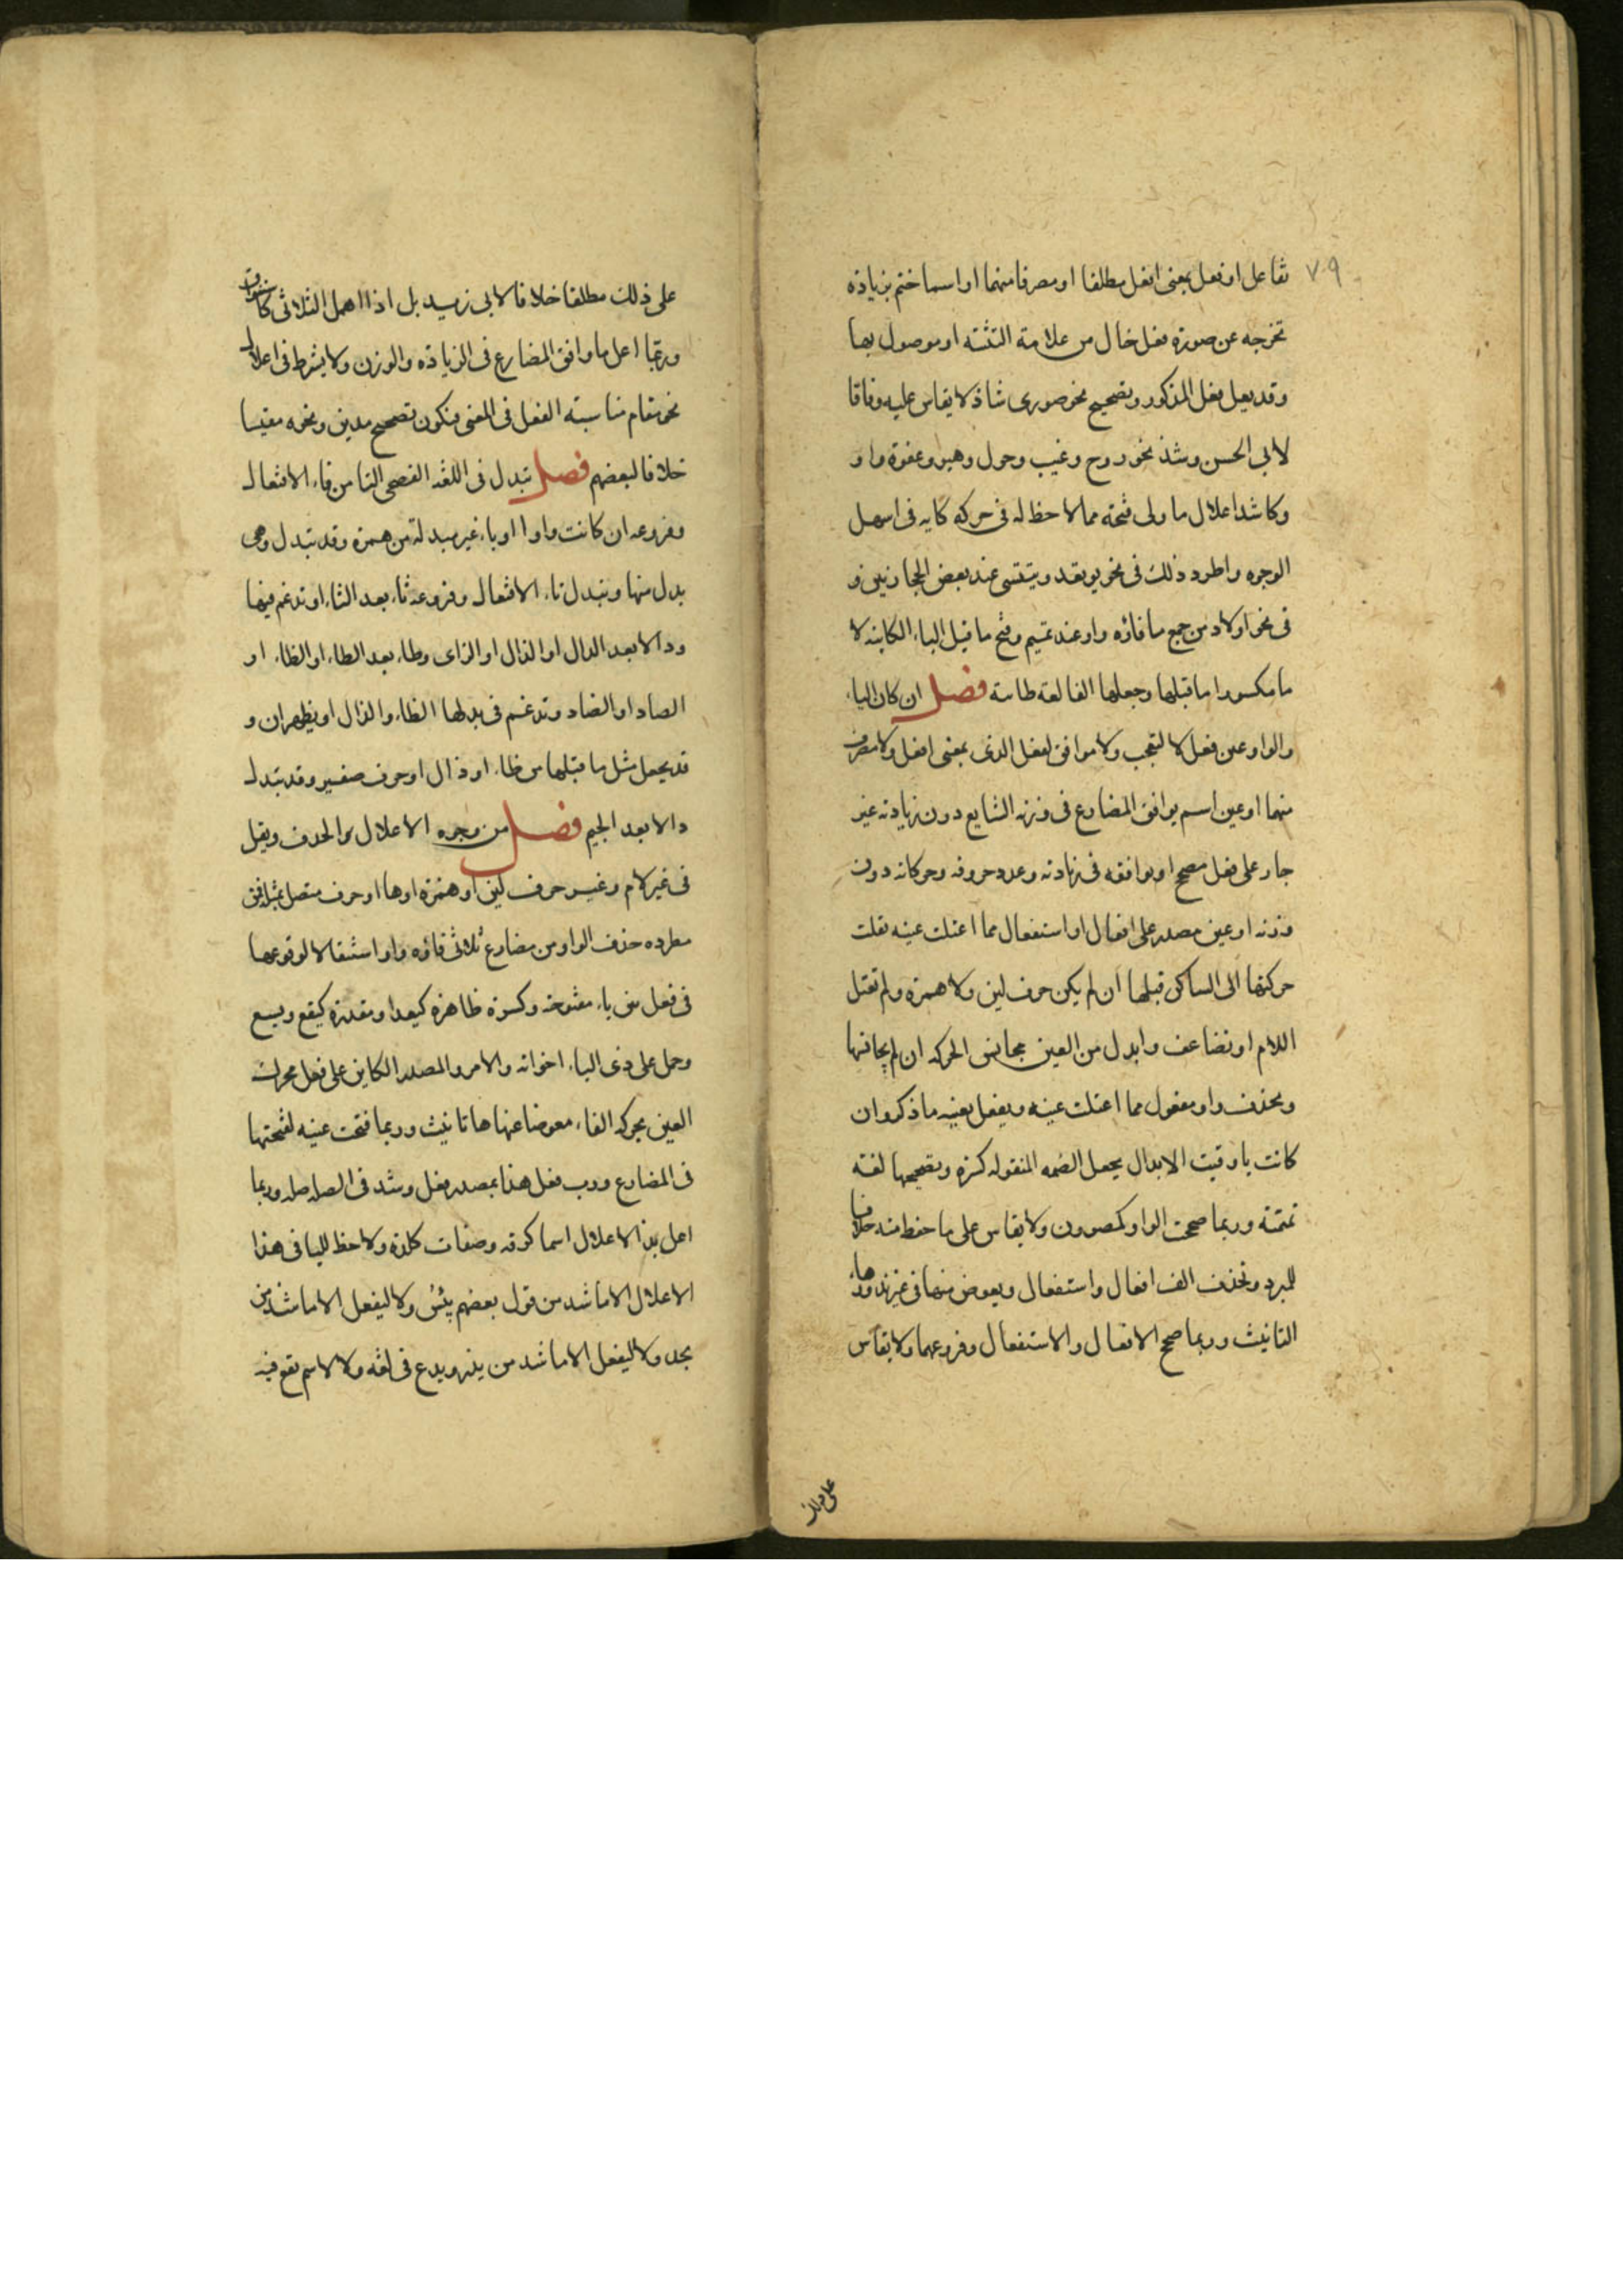 ٧٩
تفاعل او فعل بمعنى افعل مطلقا او مصرفا منهما او اسما ختم بزيادة
تخرجه عن صورة فعل خال من علامة التثنية او موصول بها
وقد يعل فعل المذكور وتصحيح نحو صورى شاذ لا يقاس عليه وفاقا
لابى الحسن وشذ نحو روح وغيب وحول وهيو وعفوة واو و
وكا شذ اعلال ما ولى فتحة مما لاحظ له فى حركة كايه فى اسهل
الوجوه واطرد ذلك فى نحو يوتعد ويتتسى عند بعض الحجازيين و
فى نحو اولاد من جمع ما فاؤه واو عند تميم وفتح ما قبل الياء الكاينة لا
ما مكسورا ما قبلها وجعلها الفا لغة طائية فصل ان كان الياء
والواو عين فعل لا لتعجب ولا موافق لفعل الذى بمعنى افعل ولا مصرف
منهما او عين اسم يوافق المضارع فى وزنه الشايع دون زيادته غير
جار على فعل مصحح او يوافقه فى زيادته وعدد حروفه وحركاته دون
وزنه او عين مصدر على افعال او استفعال مما اعتلت عينه نقلت
حركتها الى الساكن قبلها ان لم يكن حرف لين ولا همزة ولم تعتل
اللام او تضاعف وابدل من العين مجانس الحركة ان لم يجانسها
وتحذف واو مفعول مما اعتلت عينه ويفعل بعينه ما ذكر وان
كانت يا وقيت الابدال بجعل الضمه المنقوله كسرة وتصحيحها لغة
تميمية وربما صححت الواو كمصوون ولا يقاس على ما حفظ منه خلافا
للمبرد وتحذف الف افعال واستفعال ويعوض منها فى غير ندور هاء
التانيث وربما صحح الافعال والاستفعال وفروعهما ولا يقاس
على ذلك
على ذلك مطلقا خلافا لابى زيد بل اذا اهمل الثلاثى كاستنوق
وربما اعل ما وافق المضارع فى الزيادة والوزن ولا يشرط فى اعلال
نحو مقام مناسبة الفعل فى المعنى فتكون تصحيح مدين ونحوه مقيسا
خلافا لبعضهم فصل تبدل فى اللغه الفصحى التا من فاء الافتعال
وفروعه ان كانت واوا او ياء غير مبدلة من همزة وقد تبدل وهى
بدل منها وتبدل تاء الافتعال وفروعه ثاء بعد الثاء او تدغم فيها
ودالا بعد الدال او الذال او الزاى وطاء بعد الطاء او الظاء او
الصاد او الضاد وتدغم فى بدلها الظاء والذال او يظهران و
قد يجعل مثل ما قبلها من ظاء او ذال او حرف صفير وقد تبدل
دالا بعد الجيم فصل من وجوه الاعلال الحذف ويقل
فى غير لام وغير حرف لين او همزة او ها او حرف متصل بمثله فمن
مطرده حذف الواو من مضارع ثلاثى فاؤه واو استثقالا لوقوعها
فى فعل بين ياء مفتوحة وكسرة ظاهرة كيعد او مقدرة كيقع ويسع
وحمل على ذى الياء اخواته والامر والمصدر الكاين على فعل محرك
العين بحركه الفاء معوضا عنها ها تانيث وربما فتحت عينه لفتحتها
فى المضارع وربما فعل هذا بمصدر فعل وشذ فى الصله صله وربما
اعل بذا الاعلال اسما كرقه وصفات كلدة ولا حظ لليا فى هذا
الاعلال الا ما شذ من قول بعضهم يئس ولا ليفعل الا ما شذ من
يجد ولا ليفعل الا ما شذ من يذر ويدع فى لغة ولا لاسم تقع فيه